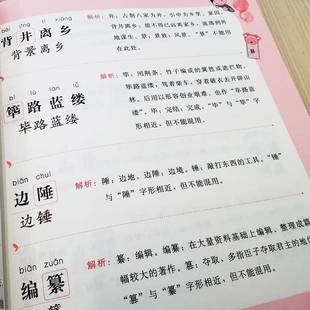 bèi jǐng lí xiāng
背井离乡
背景离乡
解析：井，古制八家为井，引申为乡里、家园。
背井离乡，
在此处。
bì lù lán lǚ
筚路蓝缕
毕路蓝缕
解析：筚，用荆条、竹子编成的篱笆或遮拦物。
筚路蓝缕：驾着柴车，穿着破衣去开辟山
林。后用以形容创业艰难，也作“荜路蓝
缕”。毕：完结；完成。“毕”与“筚”字
形相近，但不能混用。
biān chuí
边陲
边锤
解析：陲：边地。边陲：边境。锤：敲打东西的工具。“锤”
与“陲”字形相近，但不能混用。
biān zuǎn
编纂
解析：纂：编辑。编纂：在大量资料基础上编辑、整理成篇
幅较大的著作。篡：夺取，多指臣子夺取君主的地位
“篡”与“纂”字形相近，但不能混用。
B